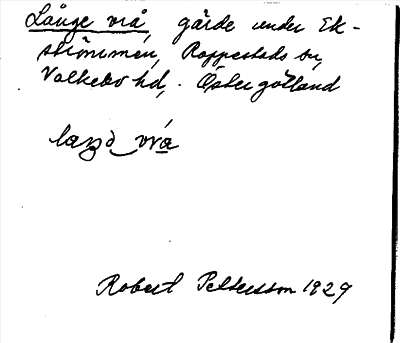 Långe vrå gärde under Ek-
strömmen, Rappestads sn,
Valkebo hd, Östergötland
vrå
Robert Pettersson 1929